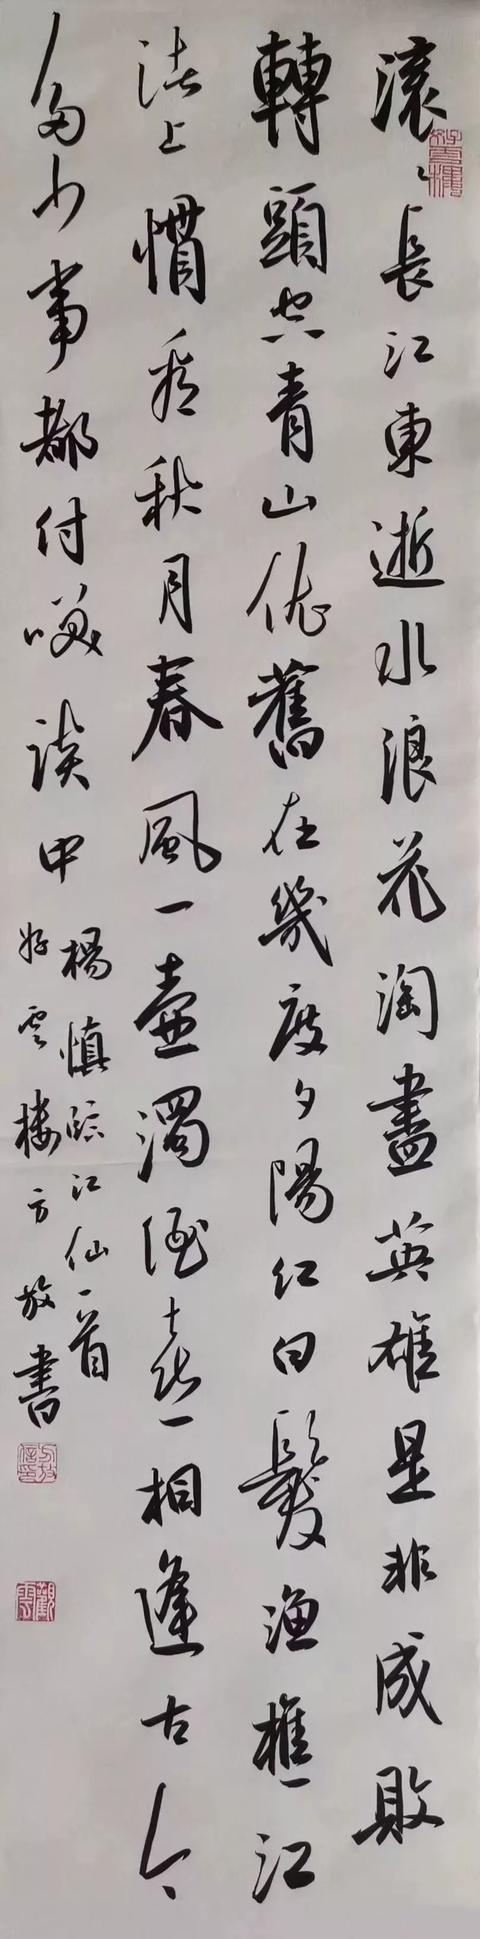 滾〻長江東逝水浪花淘盡英雄是非成敗
轉頭空青山依舊在幾度夕陽紅白髮漁樵江
渚上慣看秋月春風一壺濁酒喜相逢古今
多少事都付咲談中
楊慎臨江仙一首
好雲樓方放書
好雲樓